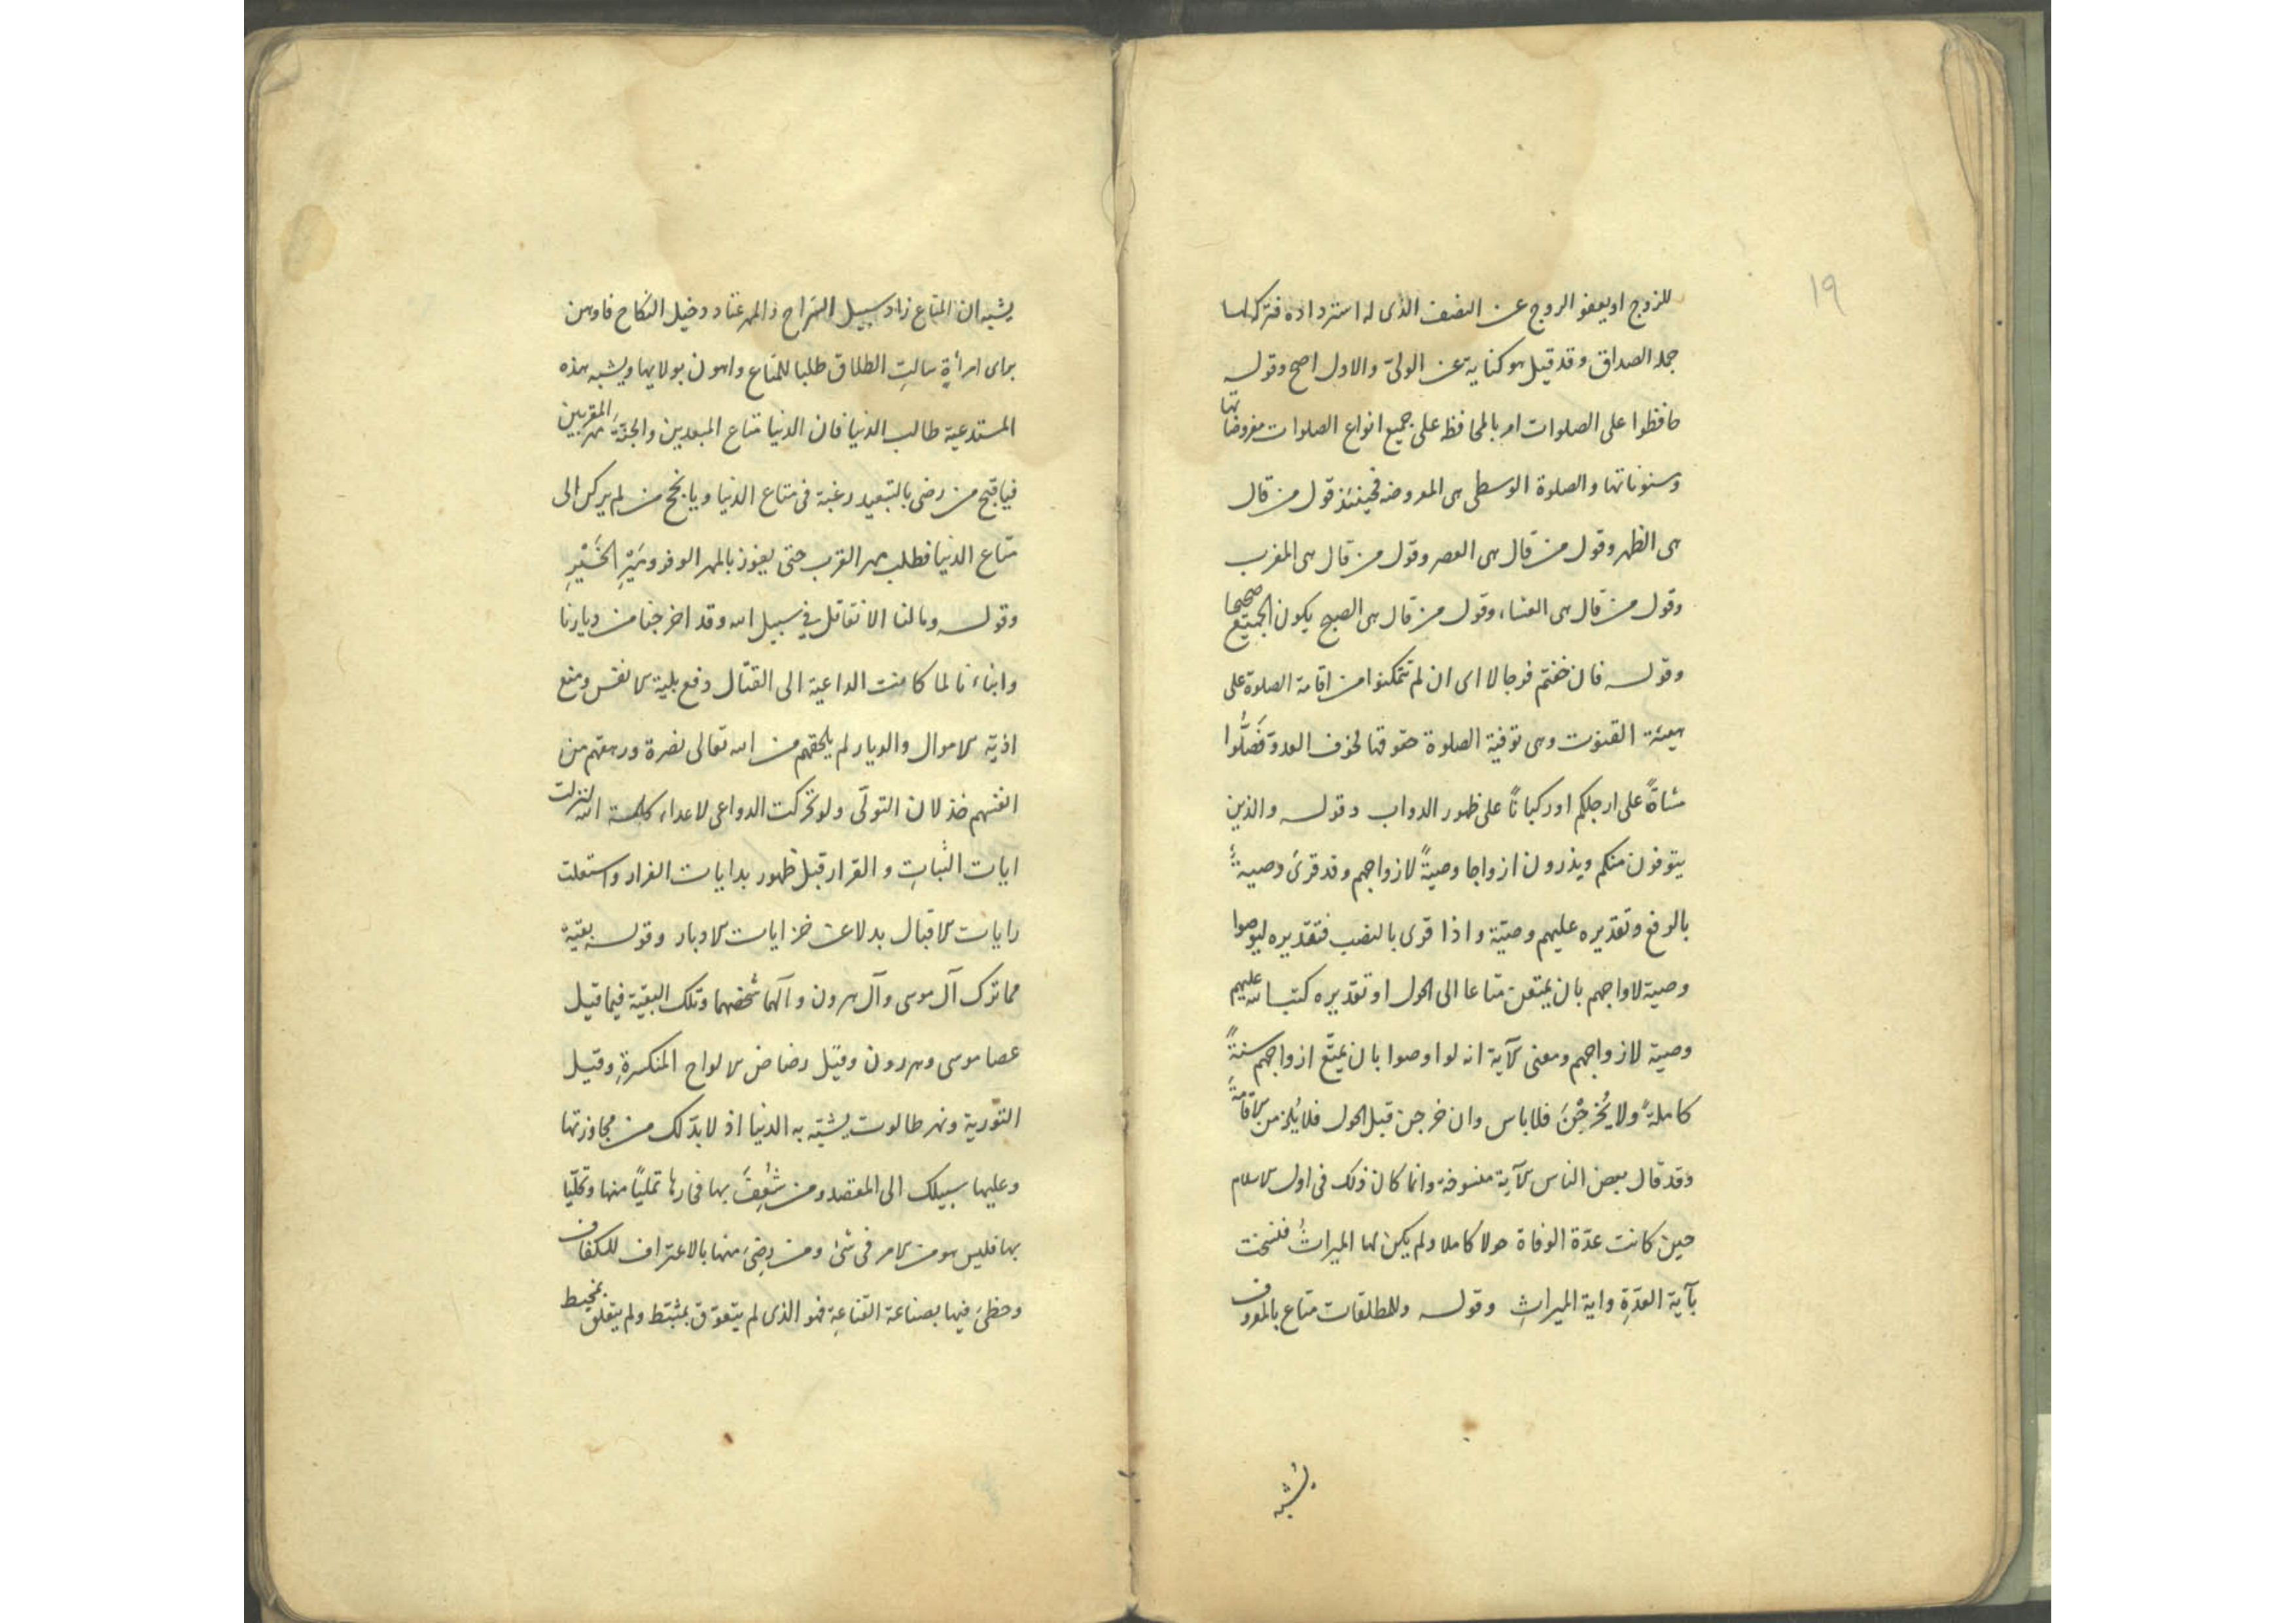 ١٩
للزوج او يعفو الزوج عن النصف الذى له استرداده فتركه لها
جملة الصداق وقد قيل هو كناية عن الولىّ والاول اصح وقوله
حافظوا على الصلوات امر بالمحافظة على جميع انواع الصلوات مفروضاتها
ومسنوناتها والصلوة الوسطى هى المفروضة فحينئذ قول من قال
هى الظهر وقول من قال هى العصر وقول من قال هى المغرب
وقول من قال هى العشاء وقول من قال هى الصبح يكون الجميع صحيحا
وقوله فان خفتم فرجالا اى ان لم تتمكنوا من اقامة الصلوة على
هيئة القنوت وهى توفية الصلوة حقوقها لخوف العدوّ فَصَلُّوا
مشاةً على ارجلكم او ركباناً على ظهور الدواب وقوله والذين
يتوفون منكم ويذرون ازواجا وصيةً لازواجهم وقد قرئ وصيةٌ
بالرفع وتقديره عليهم وصيّة واذا قرى بالنصب فتقديره ليوصوا
وصية لازواجهم بان يمتعن متاعا الى الحول او تقديره كتب الله عليهم
وصية لازواجهم ومعنى الآية انه لو اوصوا بان يمتّع ازواجهم سنةً
كاملةً ولا يُخْرَجْنَ فلا باس وان خرجن قبل الحول فلا يُلزمن الاقامةَ
وقد قال بعض الناس الآية منسوخة وانما كان ذلك فى اول الاسلام
حين كانت عدّة الوفاة حولا كاملا ولم يكن لها الميراثُ فنسخت
بآية العدّةِ واية الميراثِ وقوله وللمطلقات متاع بالمعروف
يشبه
يشبه ان المتاع زاد سبيل السّراح والمهر عتاد دخيل النكاح فاوهن
براى امرأةٍ سالتِ الطلاق طلبا للمتاع واهون بولايها ويشبه بهذه
المستدعية طالب الدنيا فان الدنيا متاع المبعدين والجنّةَ مهر المقربين
فيا قبح من رضى بالتبعيد رغبة فى متاع الدنيا ويا نجح من لم يركن الى
متاع الدنيا فطلب مهر القرب حتى يفوز بالمهر الوفر ومَيْرِ الخَيْرِ
وقوله وما لنا الا نقاتل فى سبيل الله وقد اخرجنا من ديارنا
وابناءنا لما كانت الداعية الى القتال دفع بلية الانفس ومنع
اذية الاموال والديار لم يلحقهم من الله تعالى نصرة ورهقهم من
انفسهم خذلان التولّى ولو تحركت الدواعى لاعلاء كلمة الله لنزلت
ايات الثباتِ والقرار قبل ظهور بدايات الفرار واستعلت
رايات الاقبال بدلا عن خزايات الادبار وقوله بقيّة
مما ترك آل موسى وآل هرون وآلهما شخصهما وتلك البقيّة فيما قيل
عصا موسى وهرون وقيل رضاض الالواح المنكسرةِ وقيل
التّورية ونهر طالوت يشبّه به الدنيا اذ لا بدّ لك من مجاوزتها
وعليها سبيلك الى المقصد ومن شُعِفَ بها فحارها تمليًا منها وتحلّيا
بها فليس هو من الامر فى شئ ومن رضِىَ منها بالاغتراف للكفاف
وحظىَ فيها بصناعة القناعةِ فهو الذى لم يتعوّق بمثبّط ولم يتعلق بمحبط